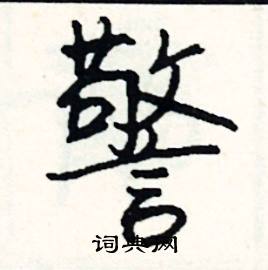 警
词典网